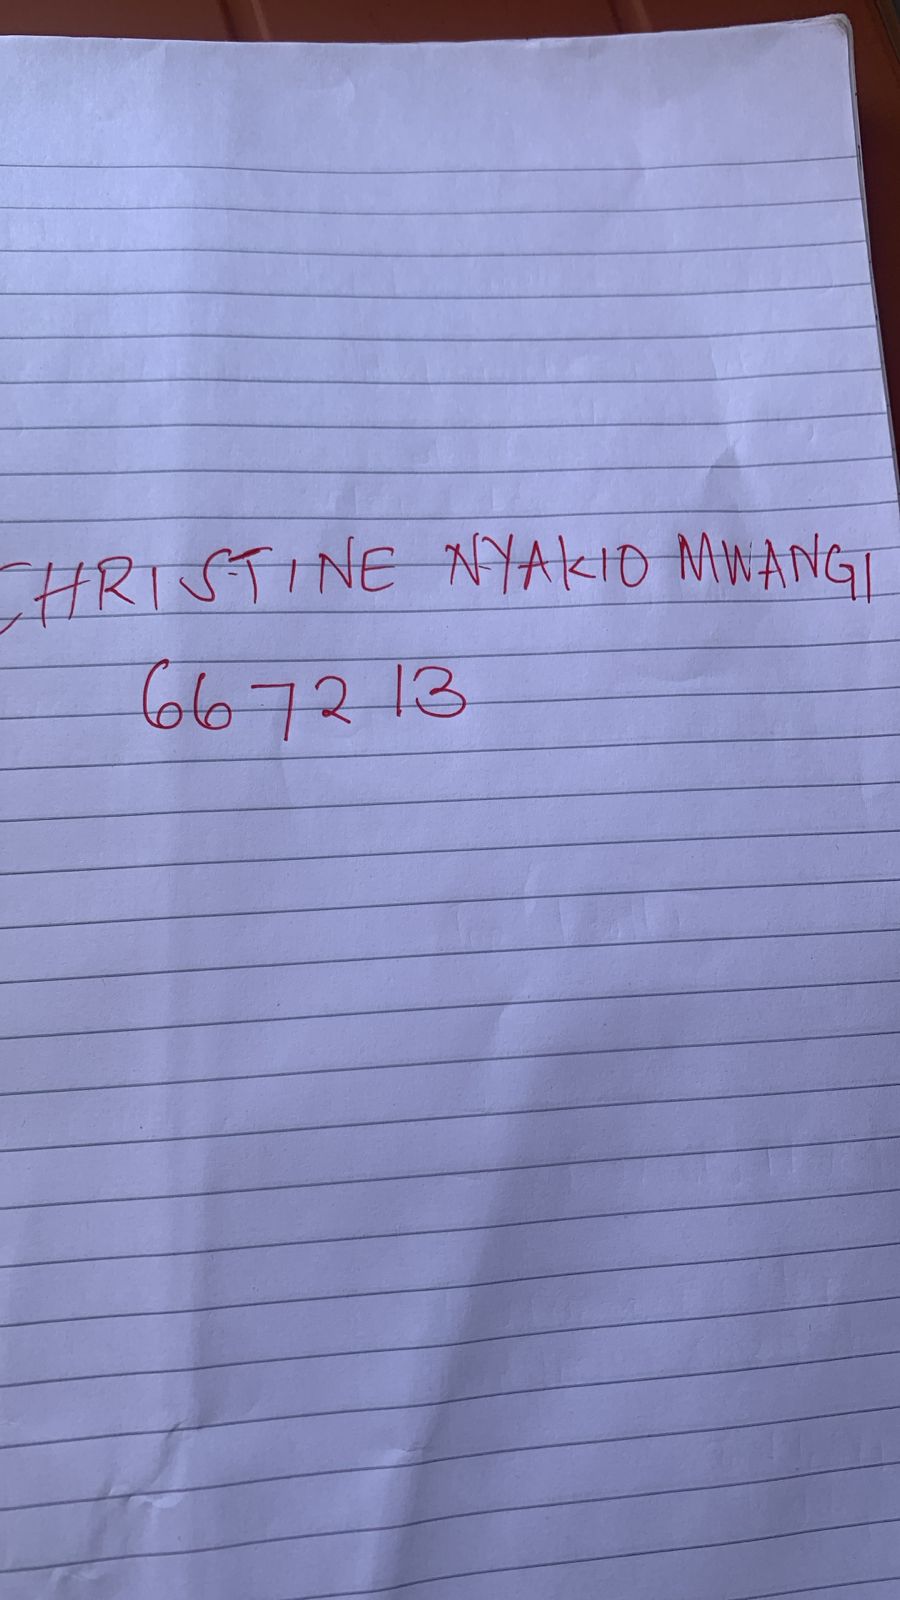 CHRISTINE NYAKIO MWANGI
667213